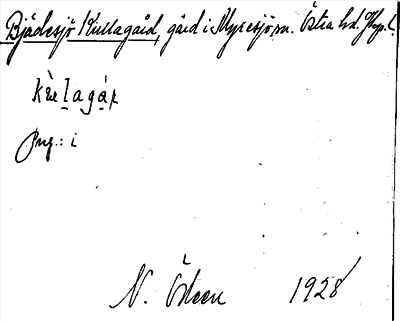 Bjädesjö Kullagård, gård i Myresjö sn. Östra hd. Jkp. l.
kùlagáṛ
Prep.: i
N. Ödeen 1928